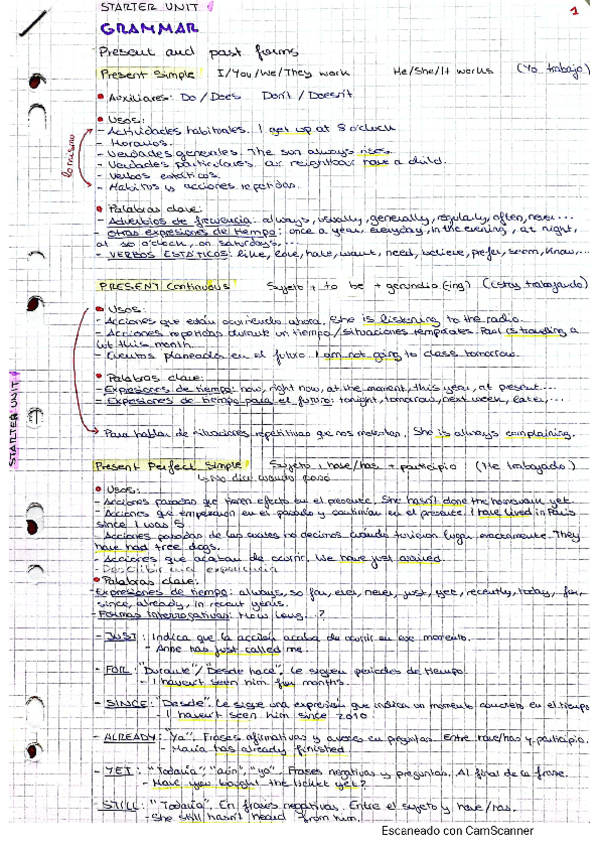 STARTER UNIT
1
GRAMMAR
Present and past forms
Present Simple I/You/We/They work He/She/It works (Yo trabajo)
• Auxiliares: Do / Does Don't / Doesn't
• Usos:
- Actividades habituales. I get up at 8 o'clock
- Horarios.
- Verdades generales. The sun always rises.
- Verdades particulares. Our neighbour have a child.
- Verbos estáticos.
- Hábitos y acciones repetidas.
lo mismo
• Palabras clave:
- Adverbios de frecuencia: always, usually, generally, regularly, often, never...
- Otras expresiones de tiempo: once a year, everyday, in the evening, at night,
at 10 o'clock, on saturday's,...
- VERBOS ESTÁTICOS: like, love, hate, want, need, believe, prefer, seem, know,...
PRESENT Continuous Sujeto + to be + gerundio (-ing) (Estoy trabajando)
• Usos:
- Acciones que están ocurriendo ahora. She is listening to the radio.
- Acciones repetidas durante un tiempo/situaciones temporales. Paul is traveling a
lot this month.
- Eventos planeados en el futuro. I am not going to class tomorrow.
• Palabras clave:
- Expresiones de tiempo: now, right now, at the moment, this year, at present...
- Expresiones de tiempo para el futuro: tonight, tomorrow, next week, later,...
Para hablar de situaciones repetitivas que nos molestan. She is always complaining.
STARTER UNIT
Present Perfect Simple Sujeto + have/has + participio (He trabajado)
↳ No dice cuando pasó
• Usos:
- Acciones pasadas que tienen efecto en el presente. She hasn't done the homework yet.
- Acciones que empezaron en el pasado y continúan en el presente. I have lived in Paris
since I was 5
- Acciones pasadas de las cuales no decimos cuándo tuvieron lugar exactamente. They
have had three dogs.
- Acciones que acaban de ocurrir. We have just arrived.
- Describir una experiencia
• Palabras clave:
- Expresiones de tiempo: always, so far, ever, never, just, yet, recently, today, for,
since, already, in recent years.
- Formas interrogativas: How long...?
- JUST: Indica que la acción acaba de ocurrir en ese momento.
- Anne has just called me.
- FOR: "Durante"/"Desde hace". Le siguen periodos de tiempo.
- I haven't seen him for months.
- SINCE: "Desde". Le sigue una expresión que indica un momento concreto en el tiempo
- I haven't seen him since 2010
- ALREADY: "Ya". Frases afirmativas y a veces en preguntas. Entre have/has y participio.
- María has already finished.
- YET: "Todavía", "aún", "ya". Frases negativas y preguntas. Al final de la frase.
- Have you bought the ticket yet?
- STILL: "Todavía". En frases negativas. Entre el sujeto y have/has.
- She still hasn't heard from him.
Escaneado con CamScanner